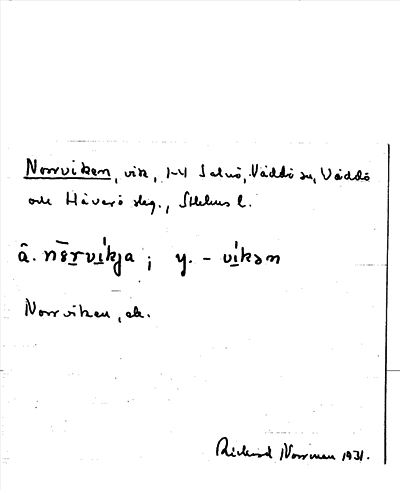 Norrviken, vik, 1-4 Salnö, Väddö sn, Väddö
och Häverö skg., Sthlms l.
â. nērvíkja ; y. - víkən
Norrviken, ek.
Rickard Norrman 1931.